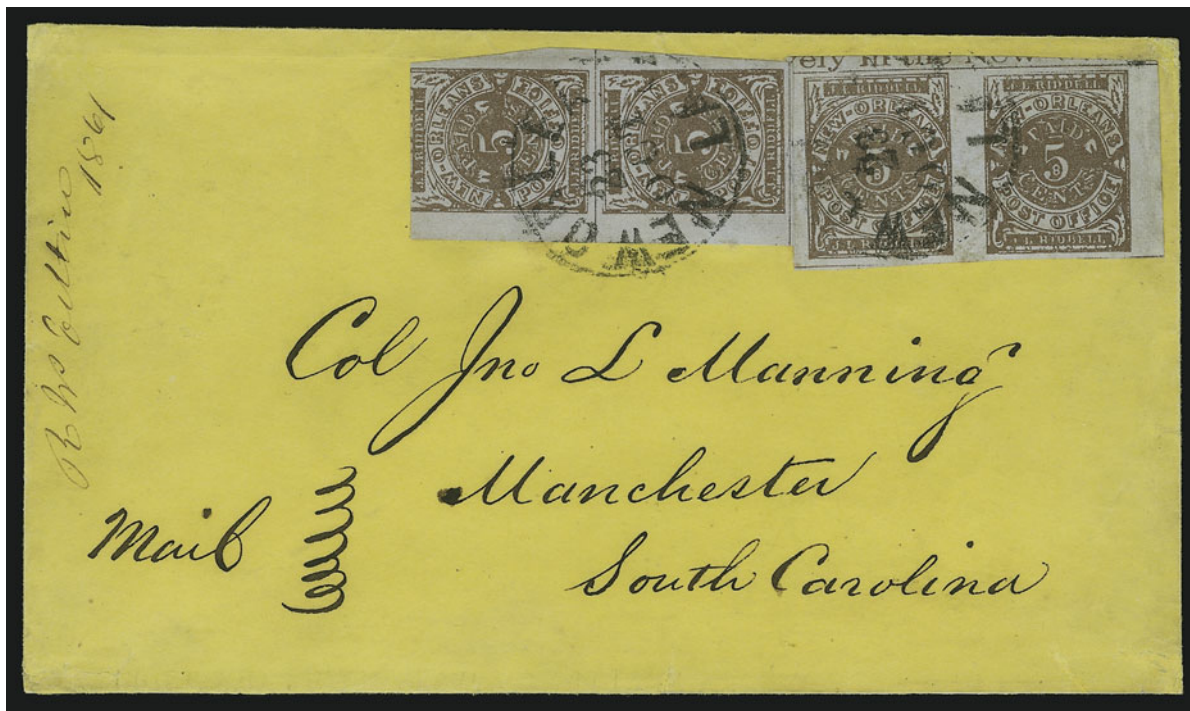 J.L. RIDDELL
NEW-ORLEANS
PAID
5
CENTS
POST OFFICE
J.L. RIDDELL
J.L. RIDDELL
NEW-ORLEANS
PAID
5
CENTS
POST OFFICE
J.L. RIDDELL
ery in the New
J.L. RIDDELL
NEW-ORLEANS
PAID
5
CENTS
POST OFFICE
J.L. RIDDELL
J.L. RIDDELL
NEW-ORLEANS
PAID
5
CENTS
POST OFFICE
J.L. RIDDELL
Col Jno L Manning
Manchester
South Carolina
Mail
1861